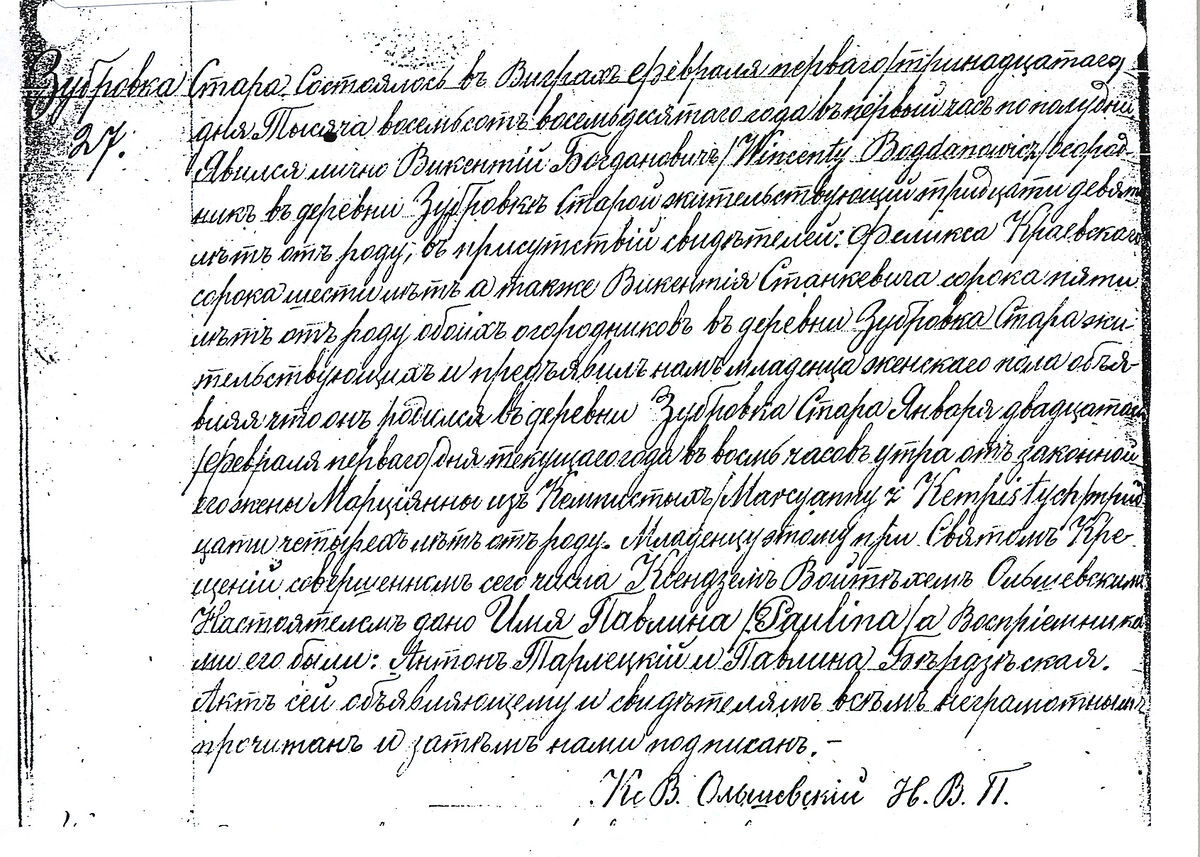 Зубровка Стара. Состоялось въ Виграхъ Февраля перваго/тринадцатаго
27. дня Тысяча восемьсотъ восемьдесятаго года въ первый часъ по полудни.
Явился лично Викентій Богдановичъ /Wincenty Bogdanowicz/ огород-
никъ въ деревни Зубровкѣ Старой жительствующій тридцати девяти
лѣтъ отъ роду, въ присутствій свидѣтелей: Феликса Краевскаго
сорока шести лѣтъ а также Викентія Станкевича сорока пяти
лѣтъ отъ роду обоихъ огородниковъ въ деревни Зубровка Стара жи-
тельствующихъ и предъявилъ намъ младенца женскаго пола объя-
вляя что онъ родился въ деревни Зубровка Стара Января двадцатаго
/Февраля перваго/ дня текущаго года въ восмь часовъ утра отъ законной
его жены Марціянны изъ Кемпистыхъ /Marcyanny z Kempistych/ трид-
цати четырехъ лѣтъ отъ роду. Младенцу этому при Святомъ Кре-
щеній совершенномъ сего числа Ксендземъ Войтѣхемъ Ольшевскимъ
Настоятелемъ дано Имя Павлина /Paulina/ а Воспріемника-
ми его были: Антонъ Тарлецкій и Павлина Бѣрдзѣская.
Актъ сей объявляющему и свидѣтелямъ всѣмъ неграмотнымъ
прочитанъ и затѣмъ нами подписанъ. –
Кс В. Ольшевскій Н. В. П.